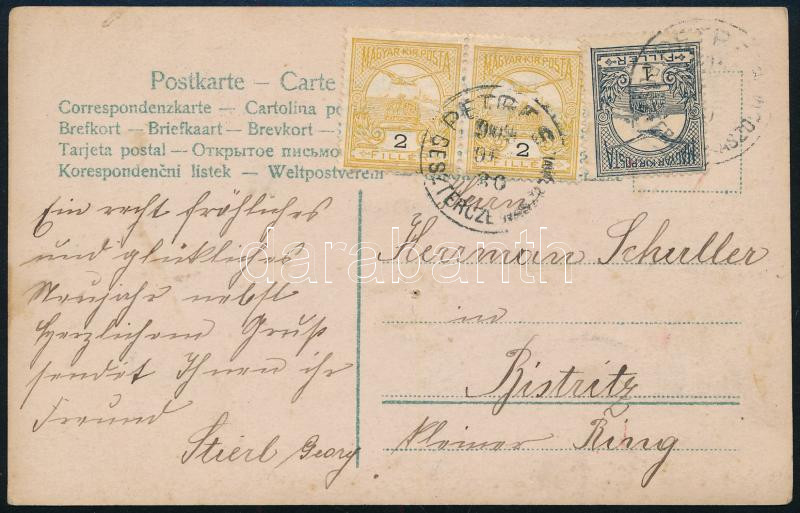 Postkarte – Carte
Correspondenzkarte – Cartolina po
Brefkort – Briefkaart – Brevkort –
Tarjeta postal – Открытое письмо
Korespondenční listek – Weltpostverein
MAGYAR·KIR·POSTA
2
FILLÉR
MAGYAR·KIR·POSTA
2
FILLÉR
MAGYAR·KIR·POSTA
1
FILLÉR
PETRES
BESZTERCZE NASZÓD
Herrn
Herrman Schuller
in
Bistritz
kleiner Ring
Ein recht fröhliches
und glückliches
Neujahr nebst
herzlichem Gruß
sendet Ihnen ihr
Freund
Stierl Georg
darabanth